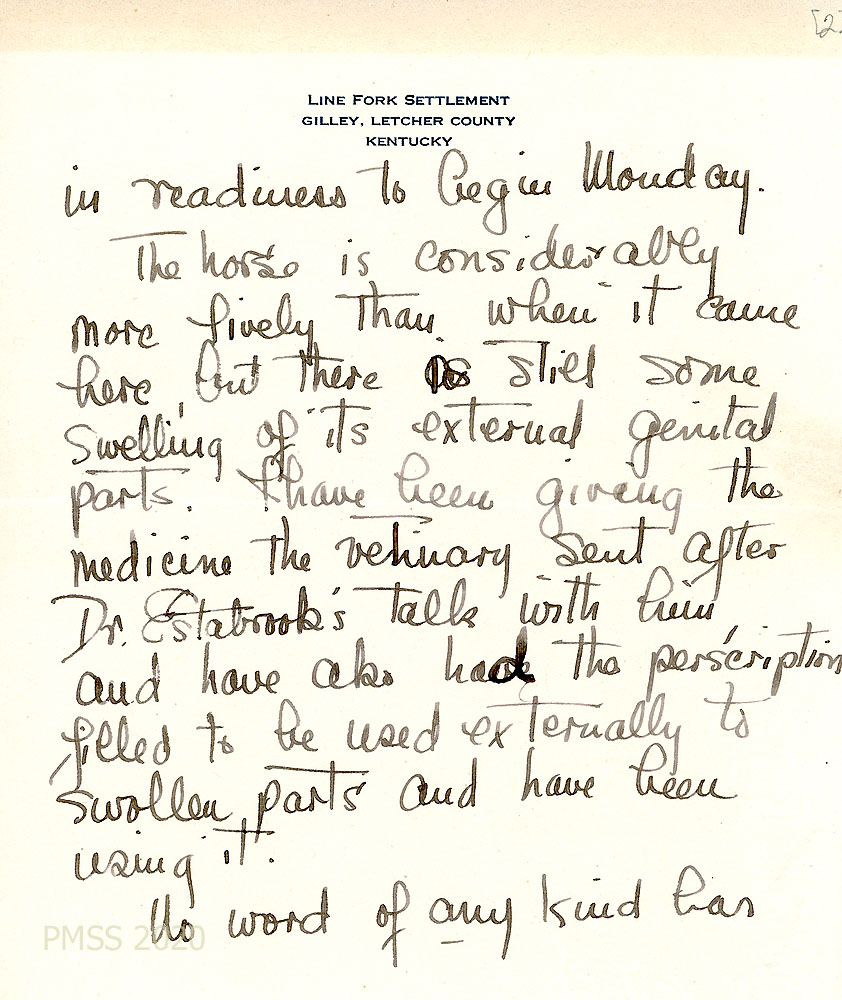 [2]
LINE FORK SETTLEMENT
GILLEY, LETCHER COUNTY
KENTUCKY
in readiness to begin Monday.
The horse is considerably
more lively than when it came
here, but there is still some
swelling of its external genital
parts. I have been giving the
medicine the vetinary sent after
Dr. Estabrook's talk with him,
and have also had the perscription
filled to be used externally to
swollen parts and have been
using it.
No word of any kind has
PMSS 2020